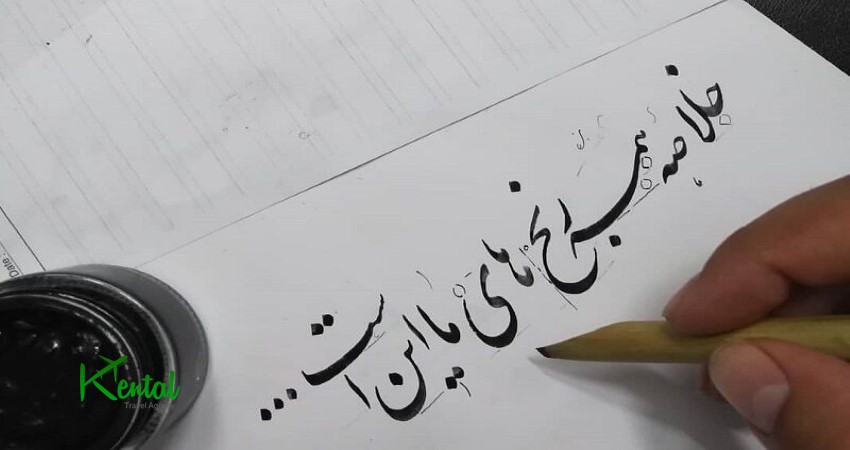 خلاصه همه رنج های ما این است...
Date:
Kental
Travel